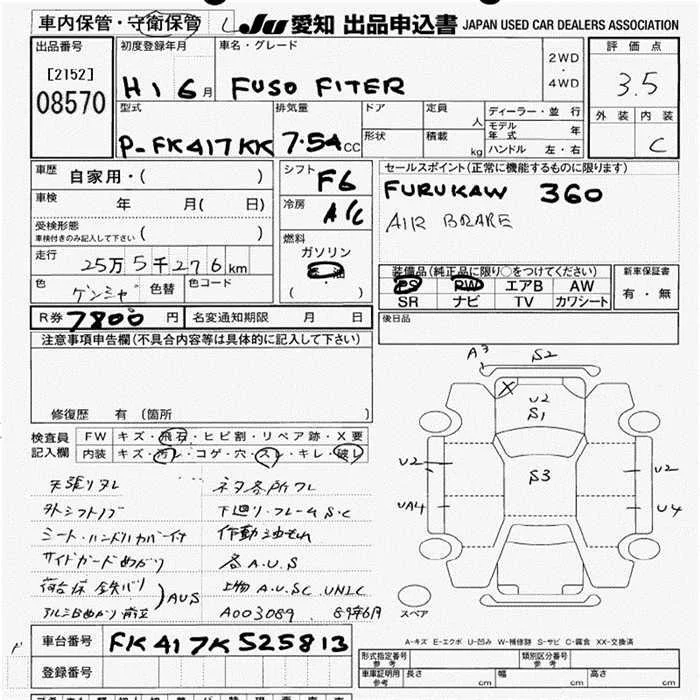 車内保管・守衛保管
JU 愛知 出品申込書 JAPAN USED CAR DEALERS ASSOCIATION
出品番号 初度登録年月 車名・グレード 評価点
[2152]
08570
H1 6月 FUSO FITER 2WD・4WD 3.5
型式 排気量 ドア 定員 人 ディーラー・並行 外装 内装
P-FK417KK 7.54CC 形状 積載 kg モデル年式 年 ハンドル 左・右 C
車歴 自家用・( ) シフト F6 セールスポイント(正常に機能するものに限ります)
車検 年 月( 日) 冷房 A/C FURUKAW 360
受検形態 車検付きのみ記入して下さい ( ) 燃料 AIR BRAKE
走行 25万5千276km ガソリン
軽油
( ・ )
色 ゲンシャ 色替 色コード
装備品(純正品に限り○をつけてください) 新車保証書
PS PW エアB AW 有・無
SR ナビ TV カワシート
R券 7800円 名変通知期限 月 日 後日品
注意事項申告欄(不具合内容等は具体的に記入して下さい)
修復歴 有 (箇所 )
A3 S2
U2
S1
S3
U2 U2
UA4 U4
スペア
検査員記入欄 FW キズ・飛石・ヒビ割・リペア跡・X要
内装 キズ・汚レ・コゲ・穴・スレ・キレ・破レ
天張リヌレ
外シフトノブ 下廻リ・フレームS・C
シート・ハンドルカバー付
サイドガードめがり 各A.U.S
荷台床 鉄バリ AUS 上物 A.U.SC. UNIC
A003089 89年6月
車台番号 FK417K525813
登録番号
A-キズ E-エクボ U-凹み W-補修跡 S-サビ C-腐食 XX-交換済
形式指定番号 参考 類別区分番号 参考
車庫証明用 参考 長さ cm 幅 cm 高さ cm